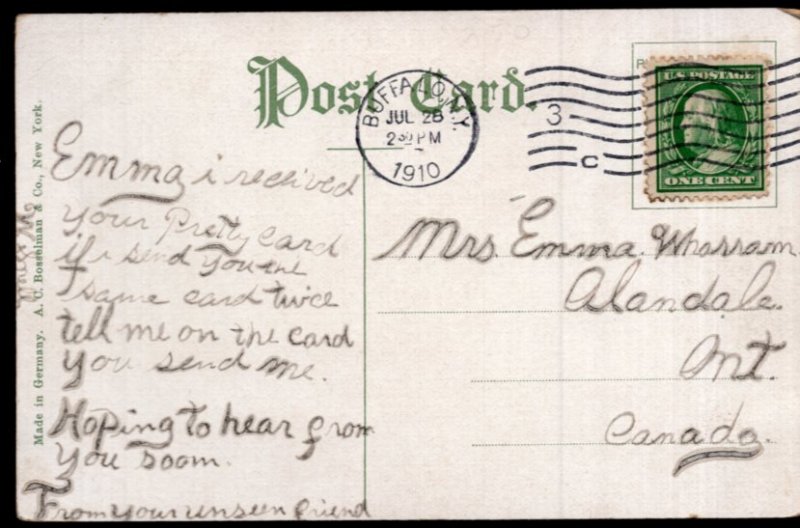 Post Card.
BUFFALO, N.Y.
JUL 28
2 30 PM
1910
3
C
U.S. POSTAGE
ONE CENT
Made in Germany. A. C. Bosselman & Co., New York.
Emma i received
your Pretty card
if i send you the
same card twice
tell me on the card
you send me.
Hoping to hear from
you soom.
From your unseen friend
Mrs. Emma Wharram
Alandale.
Ont.
Canada.